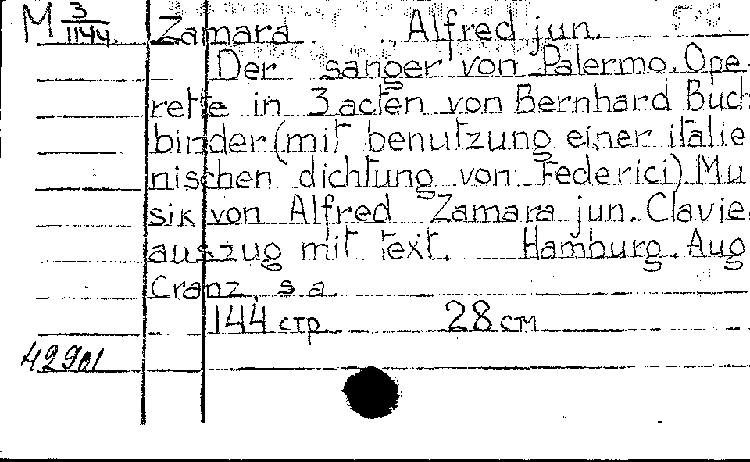 M 3/1144. Zamara Alfred jun.
Der sänger von Palermo. Ope
rette in 3 acten von Bernhard Buch
binder (mit benutzung einer italie
nischen dichtung von Federici) Mu
sik von Alfred Zamara jun. Clavie
auszug mit text. Hamburg. Aug
Cranz, s a
144 стр 28 см
42901